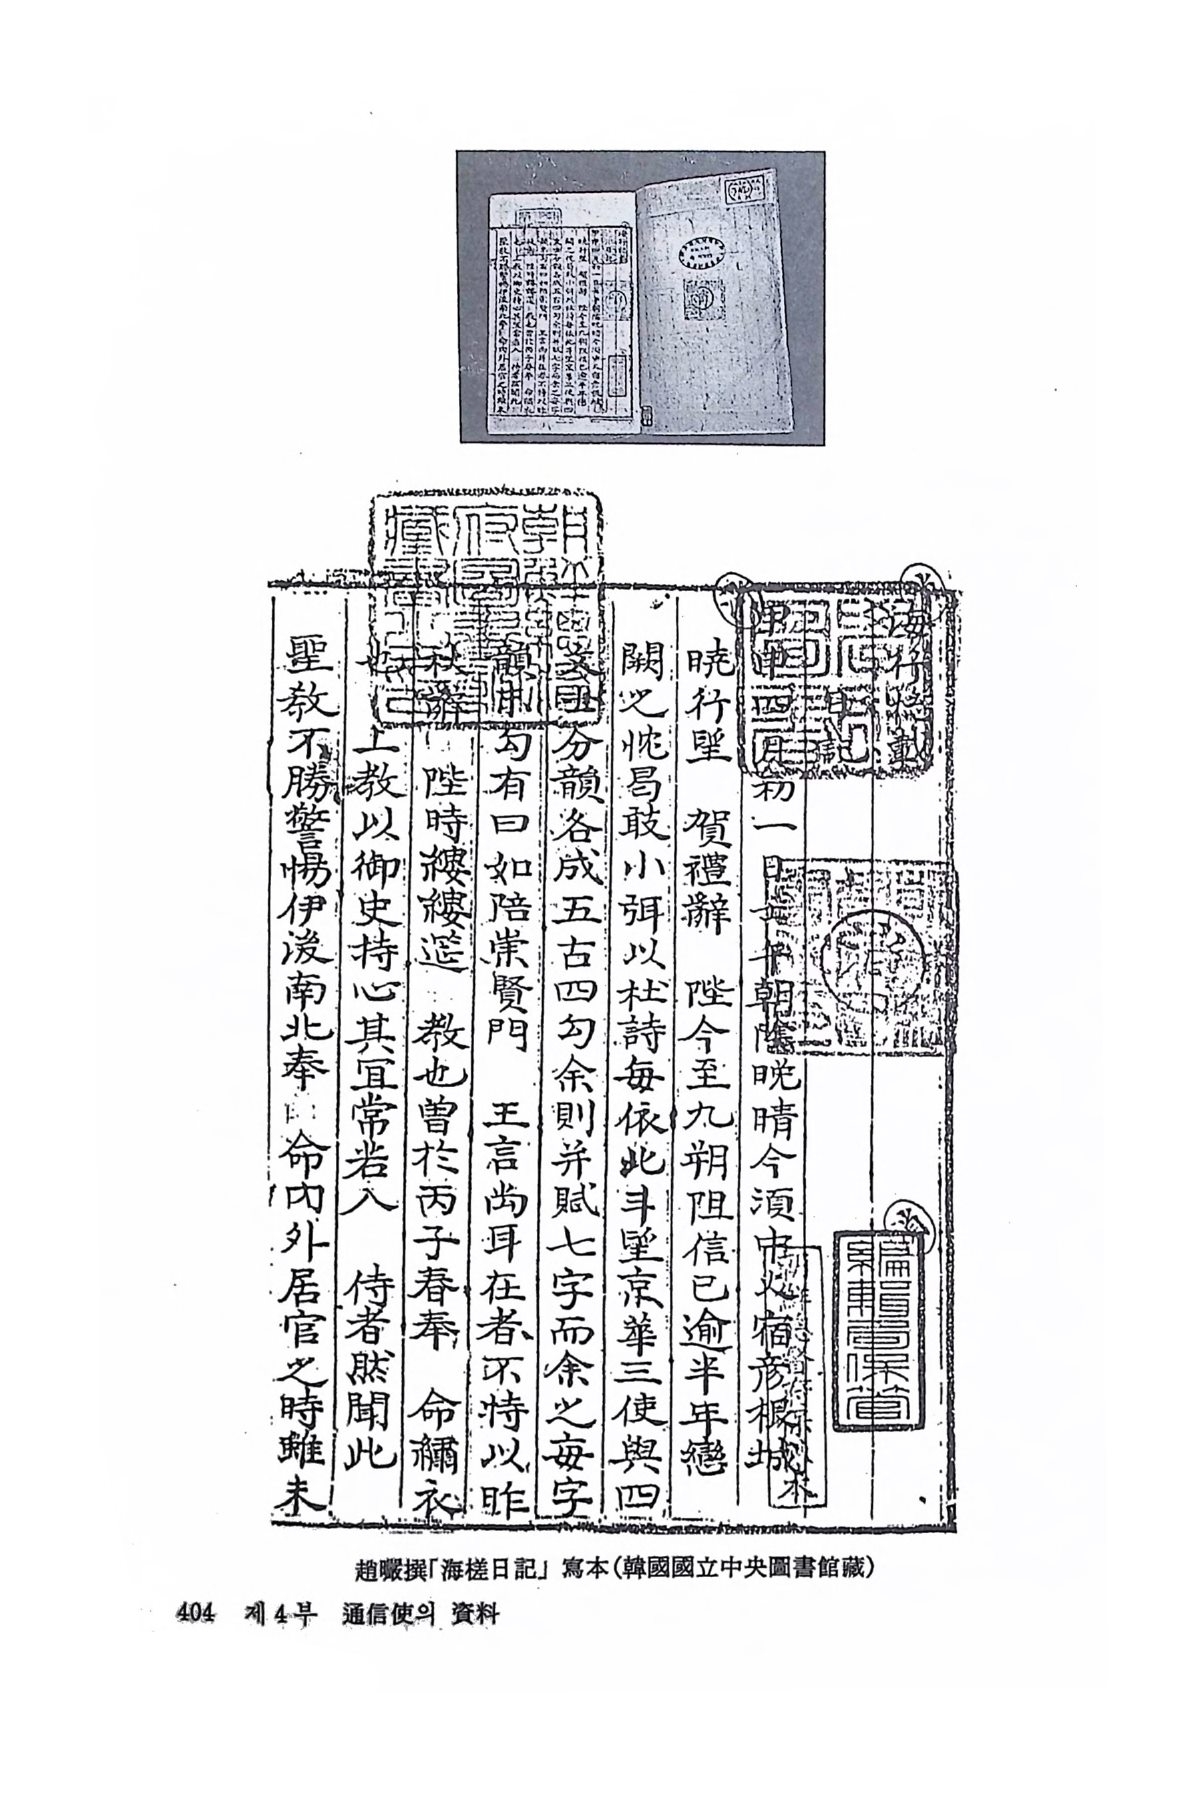 海行摠載
日記
甲申四月初一日 朝陰晩晴今須中火宿彦根城
曉行望 賀禮辭 陛今至九朔阻信已逾半年戀
闕之忱曷敢小弭以杜詩每依北斗望京華三使與四
文士分韻各成五古四句余則并賦七字而余之每字
韻用 句有曰如陪崇賢門 王言尚耳在者不特以昨
秋辭 陛時縷縷筵 敎也曾於丙子春奉 命繡衣
也 上敎以御史持心其宜常若入 侍者然聞此
聖敎不勝警惕伊後南北奉 命內外居官之時雖未
編輯官保管
趙曮撰「海槎日記」寫本(韓國國立中央圖書館藏)
404 제4부 通信使의 資料